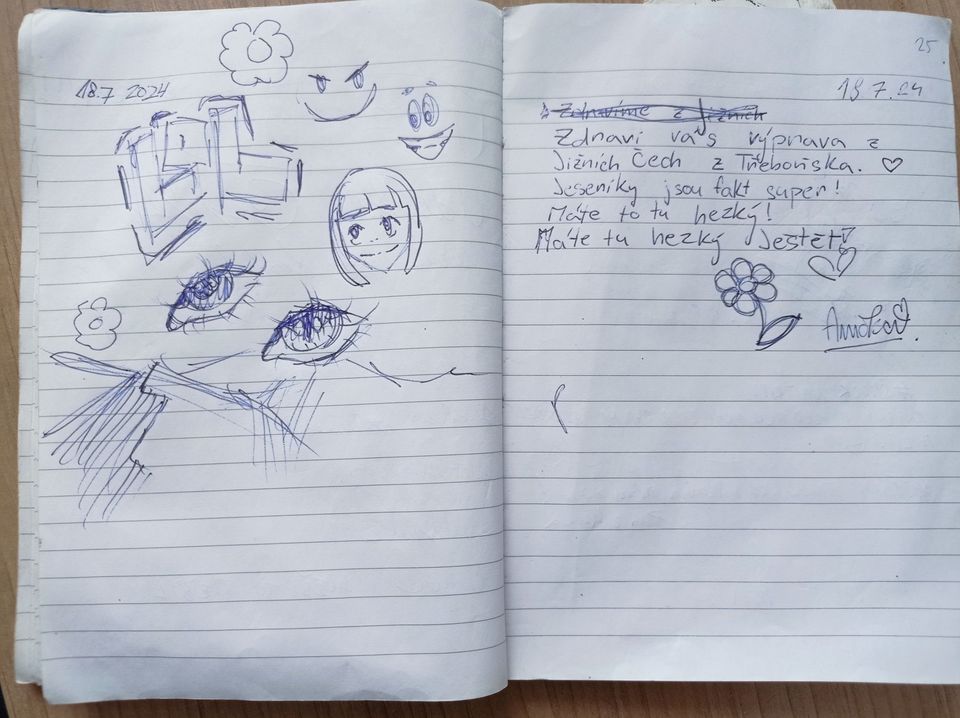 18.7 2024
25
18 7.24
Zdravíme z Jižních
Zdraví vás výprava z
Jižních Čech z Třeboňska.
Jeseníky jsou fakt super!
Máte to tu hezký!
Máte tu hezký